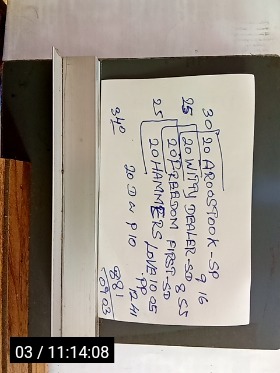 30 20 AROOSTOOK-SP 9 16
25 20 WITH DEALER-SD 8 55
20 FREEDOM FIRST-SD
25 20 HAMMERS LOVE 10 05
PP 12 41
340 20 D W P 10
881
0903
03 / 11:14:08